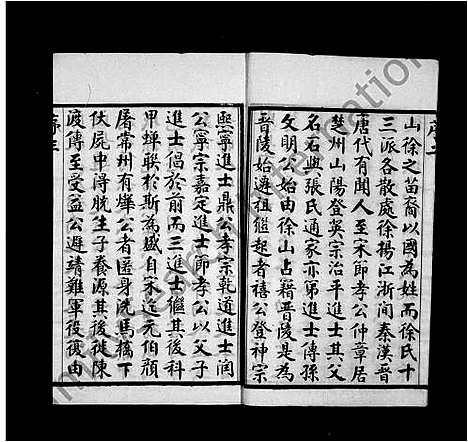 山徐之苗裔以國為姓而徐氏十
三派各散處徐揚江浙間秦漢晉
唐代有聞人至宋節孝公仲章居
楚州山陽登英宗治平進士其父
名石與張氏通家亦第進士傳孫
文明公始由徐山占籍晋陵是為
晉陵始遷祖繼起者禧公登神宗
熙寧進士鼎公孝宗乾道進士閎
公寧宗嘉定進士節孝公以父子
進士倡於前而三進士繼其後科
甲蟬聯於斯為盛自宋迄元伯顏
屠常州有燁公者匿身洗馬橋下
伏屍中得脫生子養源其後徙陳
渡傳至受益公避靖難軍役復由
序三